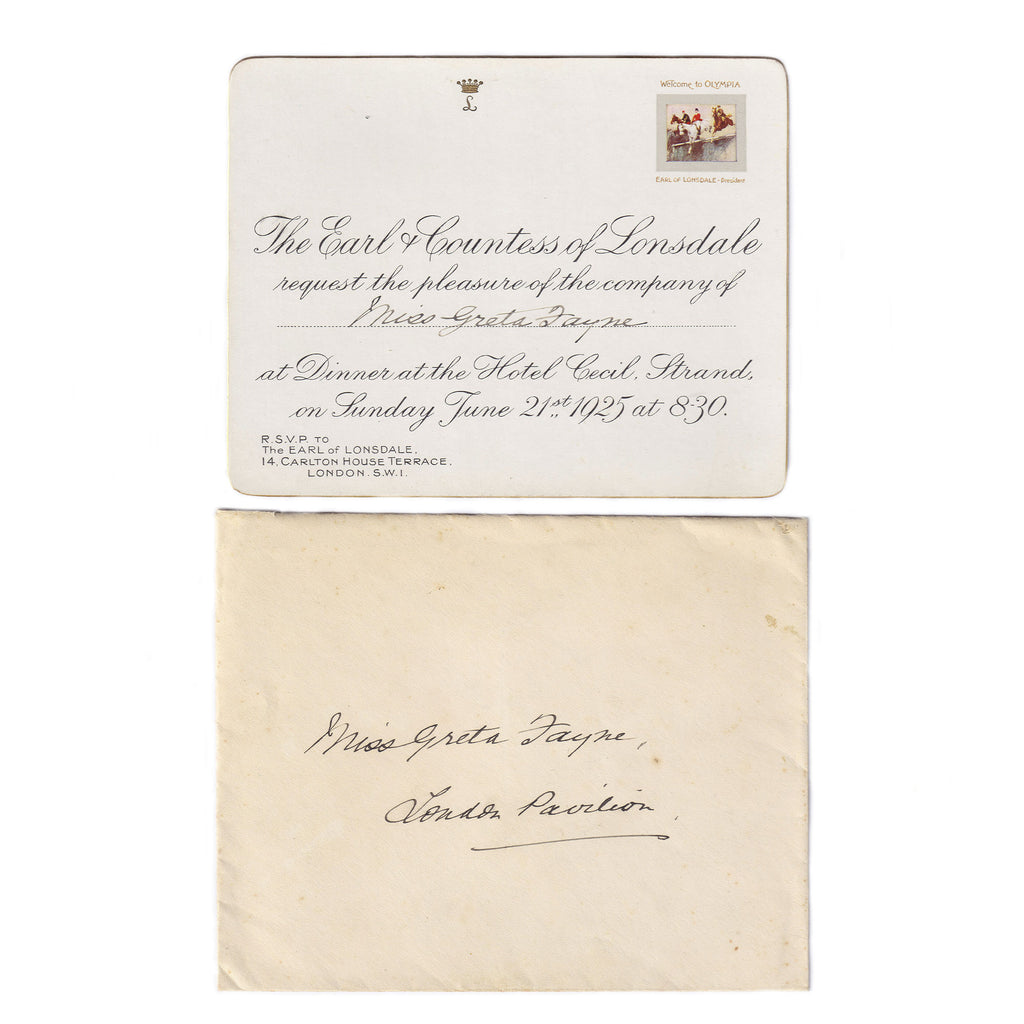 L
Welcome to OLYMPIA
EARL OF LONSDALE - President
The Earl & Countess of Lonsdale
request the pleasure of the company of
Miss Greta Fayne
at Dinner at the Hotel Cecil, Strand,
on Sunday June 21st, 1925 at 8·30.
R.S.V.P. TO
The EARL of LONSDALE,
14, CARLTON HOUSE TERRACE.
LONDON. S.W.1.
Miss Greta Fayne,
London Pavilion.